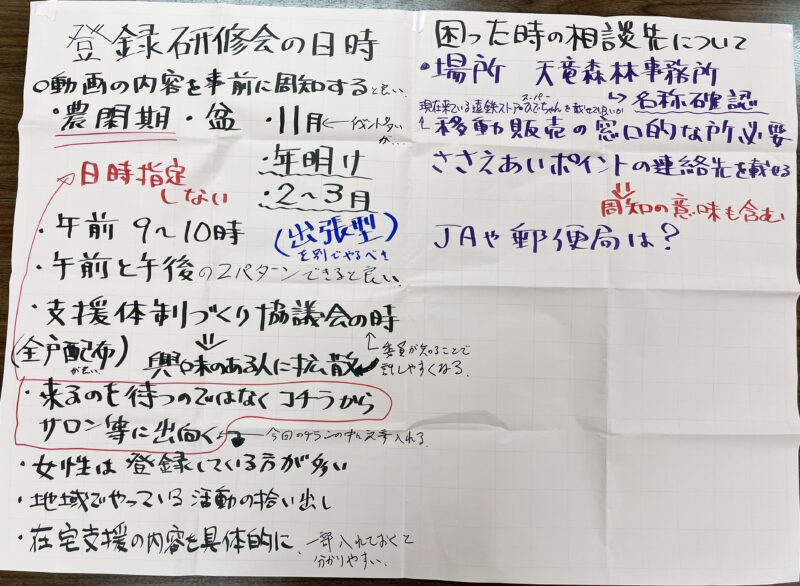 登録研修会の日時
○動画の内容を事前に周知すると良い、
・農閑期・盆 ・11月←イベント多いが…
・年明け
・2～3月
日時指定しない
・午前 9～10時
(出張型)を別でやるべき
・午前と午後の2パターンできると良い、
・支援体制づくり協議会の時
(全戸配布)が良い
興味のある人に拡散
委員が知ることで話しやすくなる。
・来るのを待つのではなく コチラから
サロン等に出向く
今回のチラシの中に入れる
・女性は登録している方が多い
・地域でやっている活動の拾い出し
・在宅支援の内容を具体的に、一部入れておくと分かりやすい、
困った時の相談先について
・場所 天竜森林事務所
↳名称確認
現在来ている遠鉄ストア・スーパーひでちゃんを載せて良いか
↳移動販売の窓口的な所必要
ささえあいポイントの連絡先を載せる
⇓
周知の意味も含む
JAや郵便局は?